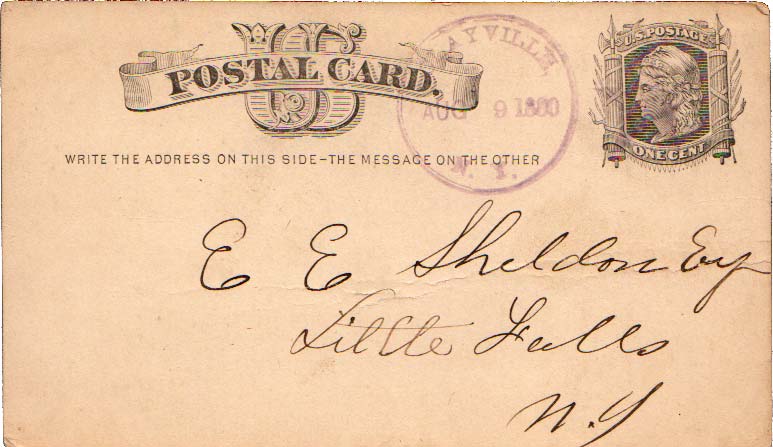 US
POSTAL CARD.
WRITE THE ADDRESS ON THIS SIDE-THE MESSAGE ON THE OTHER
AYVILLE,
AUG 9 1880
N. Y.
U.S. POSTAGE
ONE CENT
E E Sheldon Esq
Little Falls
N.Y